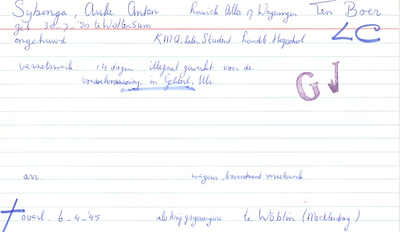 Sybenga, Auke Anton Rouwick Allee 17 Wageningen Ten Boer
geb 30-7-'20 te Woltersum LC
ongehuwd KMA, later Student Landb. Hogeschool
verzetswerk: 14 dagen illegaal gewerkt voor de
voedselvoorziening in Gelderl, Utr
GJ
arr. wegens bovenstaand verzetswerk
overl. 6-4-'45 als krijgsgevangene te Wöblin (Mecklenburg)